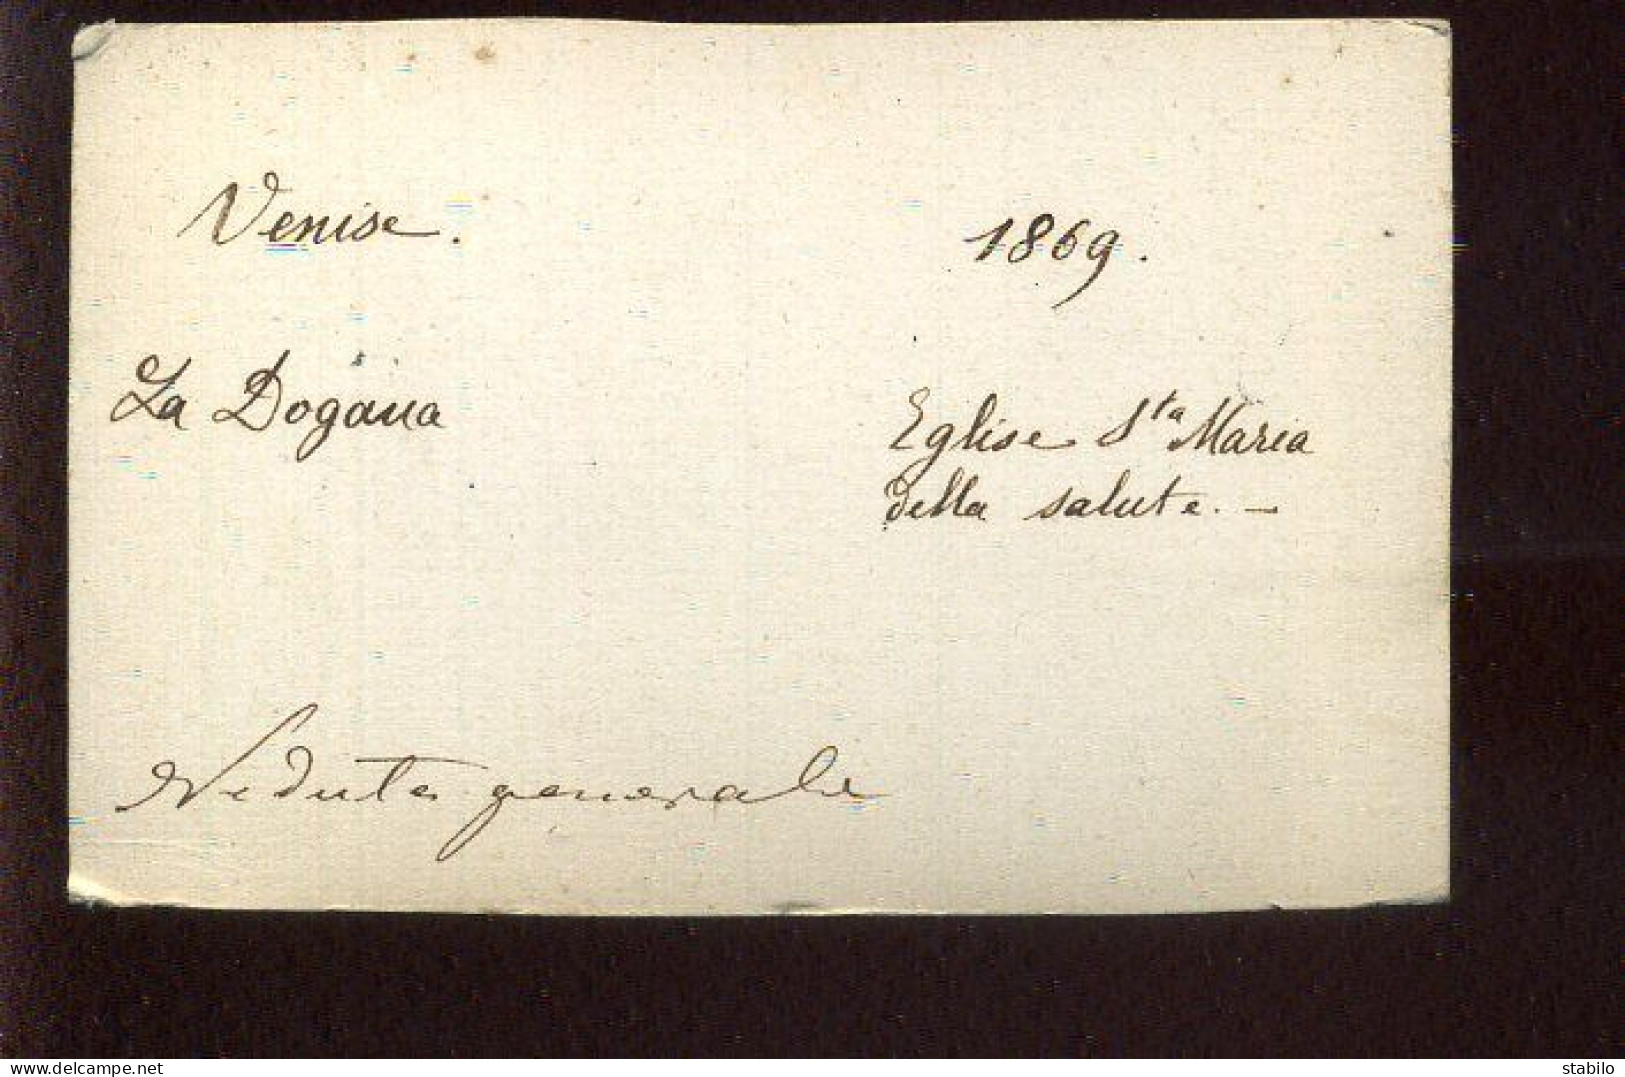 Venise.
1869.
La Dogana
Eglise Sta Maria
della salute. -
Veduta generale
delcampe.net
stabilo